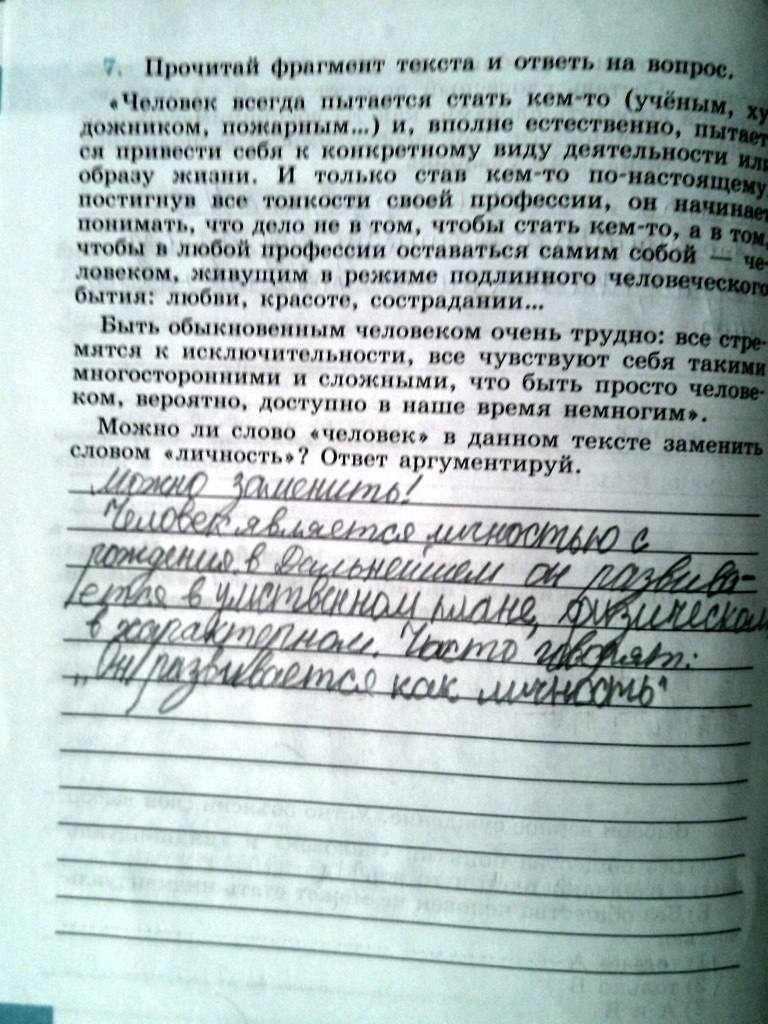 7. Прочитай фрагмент текста и ответь на вопрос.
«Человек всегда пытается стать кем-то (учёным, ху
дожником, пожарным...) и, вполне естественно, пытает
ся привести себя к конкретному виду деятельности или
образу жизни. И только став кем-то по-настоящему,
постигнув все тонкости своей профессии, он начинает
понимать, что дело не в том, чтобы стать кем-то, а в том,
чтобы в любой профессии оставаться самим собой — че-
ловеком, живущим в режиме подлинного человеческого
бытия: любви, красоте, сострадании...
Быть обыкновенным человеком очень трудно: все стре-
мятся к исключительности, все чувствуют себя такими
многосторонними и сложными, что быть просто челове-
ком, вероятно, доступно в наше время немногим».
Можно ли слово «человек» в данном тексте заменить
словом «личность»? Ответ аргументируй.
Можно заменить!
Человек является личностью с
рождения, в дальнейшем он развива-
ется в умственном плане, физическом,
в характерном. Часто говорят:
„Он развивается как личность"